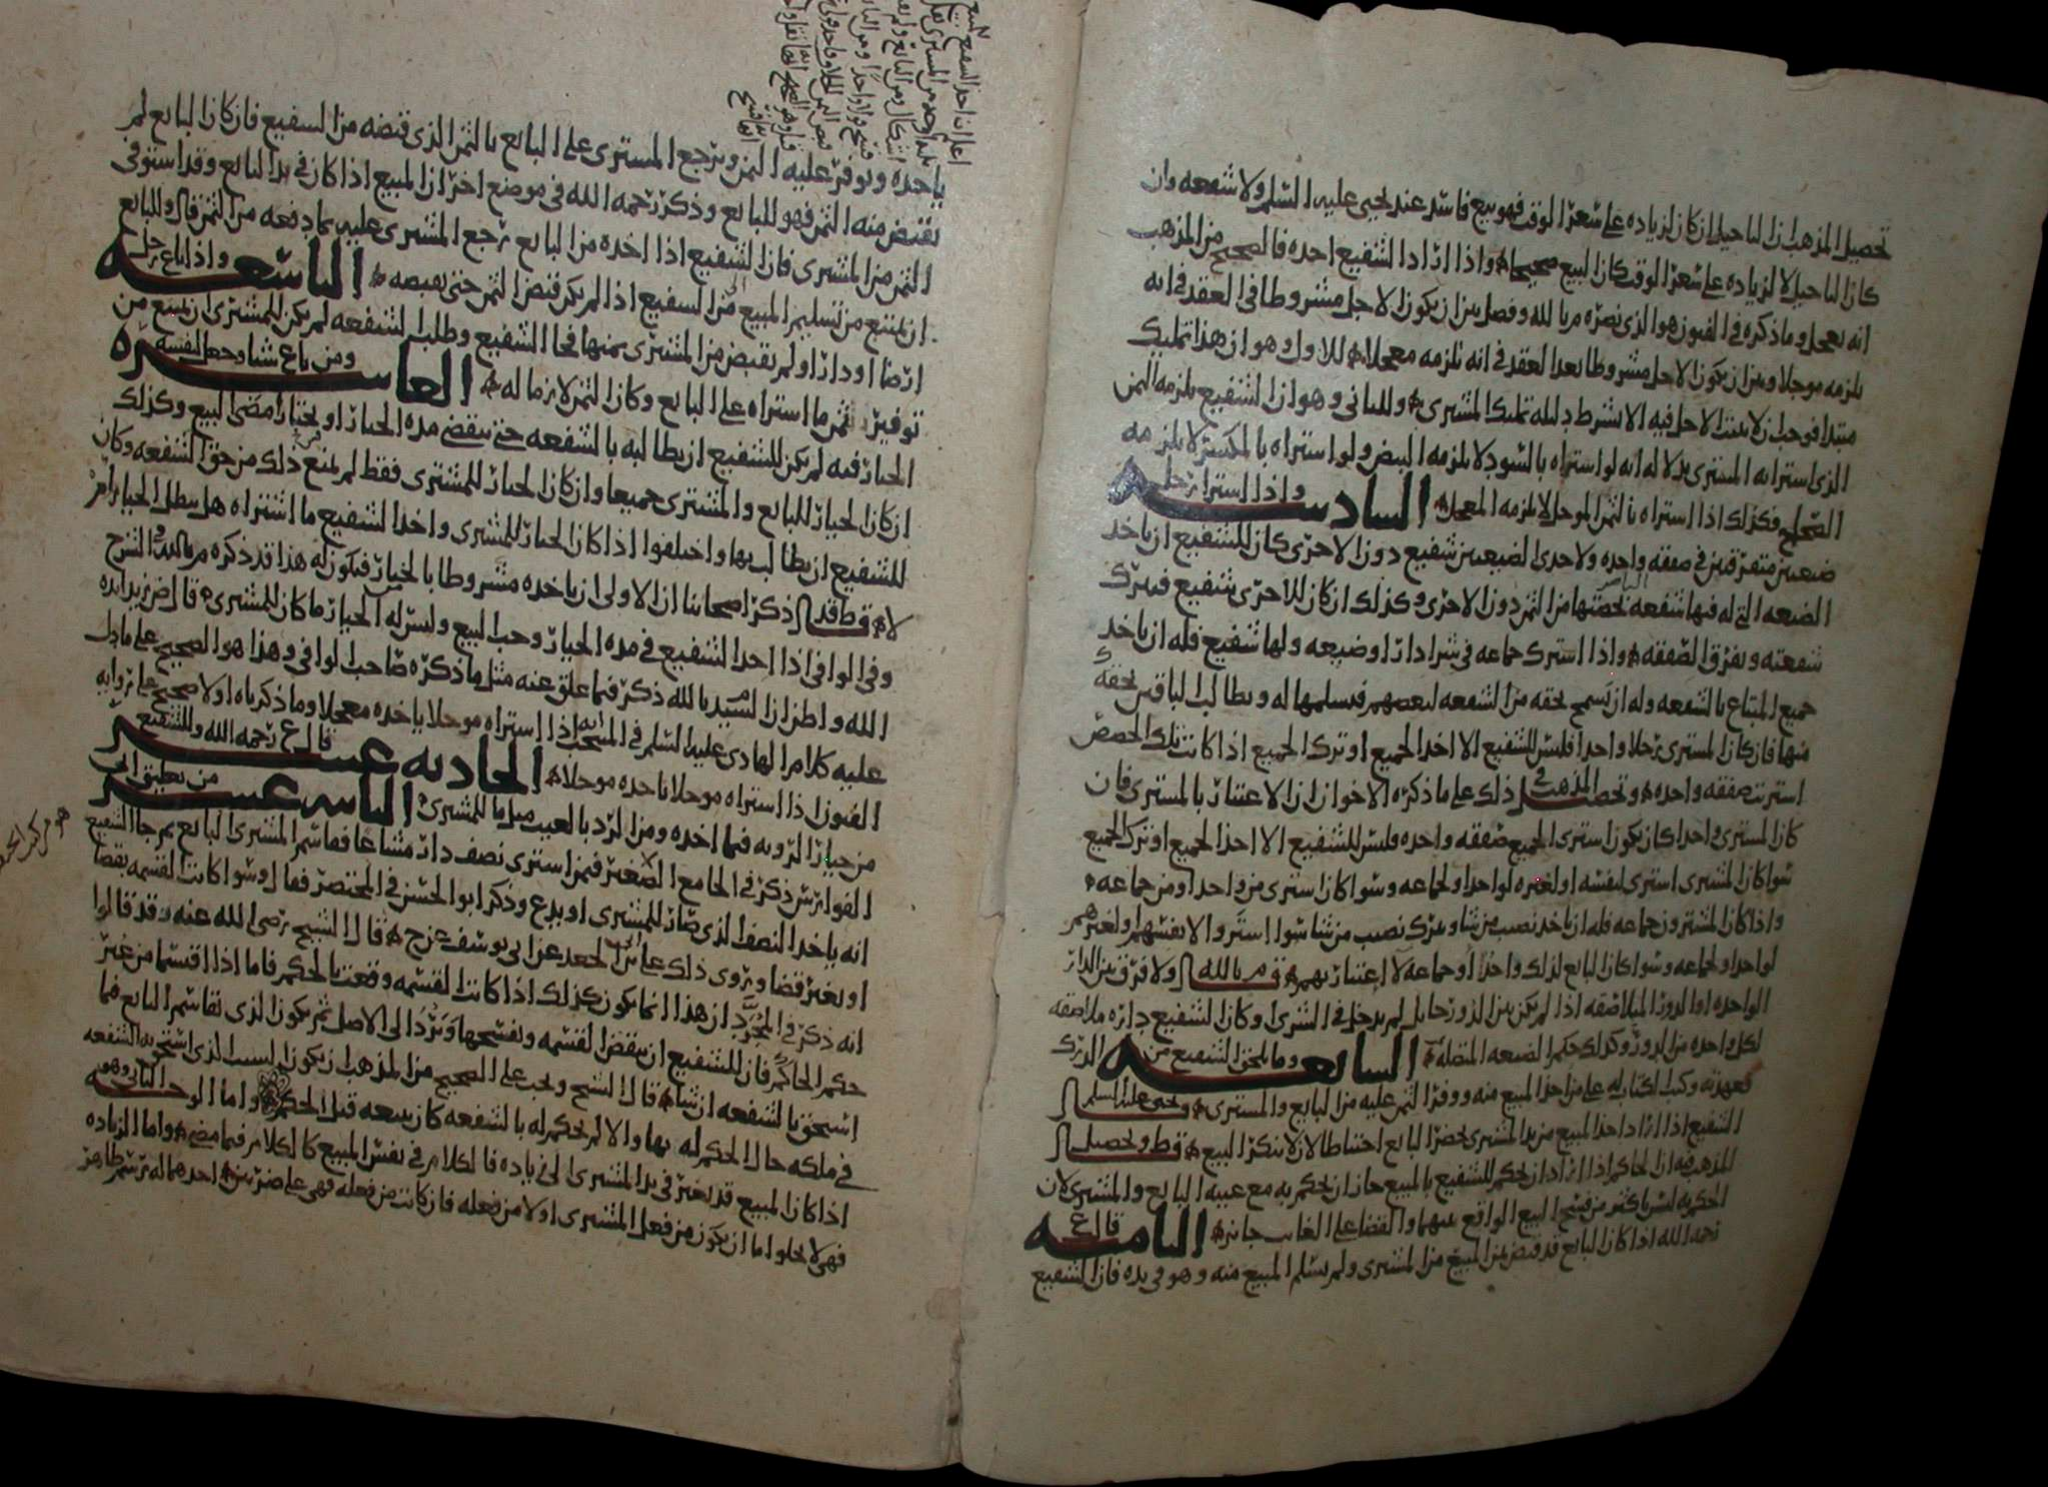 تحصيل المذهب ان التاجيل ان كان لزيادة على سعر الوقت فهو بيع فاسد عند يحيى عليه السلم ولا شفعه وان
كان التاجيل لا لزيادة على سعر الوقت كان البيع صحيحا واذا اراد الشفيع اخذه فالصحيح من المذهب
انه يعجل وما ذكره في الفنون هو الذي نصره م بالله وفصل بين ان يكون الاجل مشروطا في العقد في انه
يلزمه موجلا وبين ان يكون الاجل مشروطا بعد العقد في انه يلزمه معجلا للاول وهو ان هذا تمليك
مبتدا فوجب ان لا يثبت الاجل فيه الا بشرط دليله تمليك المشتري وللثاني وهو ان الشفيع يلزمه الثمن
الذي اشترا به المشتري بدلالة انه لو اشتراه بالسود لا يلزمه البيض ولو اشتراه بالمكسر لا يلزمه
الصحاح فكذلك اذا اشتراه بالثمن الموجل لا يلزمه المعجل السادسه واذا اشترا رجل
ضيعتين متفرقتين في صفقه واحده ولاحدى الضيعتين شفيع دون الاخرى كان للشفيع ان ياخذ
الضيعه التي له فيها شفعه بحصتها من الثمن دون الاخرى وكذلك ان كان للاخرى شفيع فترك
شفعته وتفرق الصفقه واذا اشترك جماعه في شرا دار او ضيعه ولها شفيع فله ان ياخذ
جميع المبتاع بالشفعه وله ان يسمح بحقه من الشفعه لبعضهم فيسلمها له ويطالب الباقين بحقه
منها فان كان المشتري رجلا واحدا فليس للشفيع الا اخذ الجميع او ترك الجميع اذا كانت تلك الحصص
اشتريت صفقه واحده وتحصيل المذهب في ذلك على ما ذكره الاخوان ان الاعتبار بالمشتري فان
كان المشتري واحدا كان يكون اشترى الجميع صفقه واحده فليس للشفيع الا اخذ الجميع او ترك الجميع
سوا كان المشتري اشترى لنفسه او لغيره لواحد او لجماعه وسوا كان اشترى من واحد او من جماعه
واذا كان المشترون جماعه فله ان ياخذ نصيب من شا ويترك نصيب من شا سوا اشتروا لانفسهم او لغيرهم
لواحد او لجماعه وسوا كان البايع لذلك واحدا او جماعه لا اعتبار بهم ق م بالله قال ولا فرق بين الدار
الواحده او الدور المتلاصقه اذا لم يكن بين الدور حايل لم يدخل في الشرى وكان الشفيع داره ملاصقه
لكل واحده من الدور وكذلك حكم الضيعه المتصله السابعه وما يلحق الشفيع من الدرك
فعهدته وكتب الكتاب له على من اخذ المبيع منه ووفر الثمن عليه من البايع والمشتري وعن يحيى عليه السلم ان
الشفيع اذا اراد اخذ المبيع من يد المشتري يحضر البايع احتياطا لان لا ينكر البيع ق ط وتحصيل
المذهب فيه ان الحاكم اذا اراد ان يحكم للشفيع بالمبيع جاز ان يحكم به مع غيبه البايع والمشتري لان
الحكم به ليس باكثر من فسخ البيع الواقع بينهما والقضا على الغايب جايز الثامنه قال ع
رحمه الله اذا كان البايع قد قبض ثمن المبيع من المشتري ولم يسلم المبيع منه وهو في يده فان الشفيع
ياخذه ويوفر عليه الثمن ويرجع المشتري على البايع بالثمن الذي قبضه من الشفيع فان كان البايع لم
يقبض منه الثمن فهو للبايع وذكر رحمه الله في موضع اخر ان المبيع اذا كان في يد البايع وقد استوفى
الثمن من المشتري فان الشفيع اذا اخذه من البايع رجع المشتري عليه بما دفعه من الثمن قال وللبايع
ان يمتنع من تسليم المبيع الى الشفيع اذا لم يكن قبض الثمن حتى يقبضه التاسعه واذا باع رجل
ارضا او دارا ولم يقبض من المشتري ثمنها فجا الشفيع وطلب الشفعه لم يكن للمشتري ان يمتنع من
توفير ثمن ما اشتراه على البايع وكان الثمن لازما له العاشره ومن باع شيا وجعل لنفسه
الخيار فيه لم يكن للشفيع ان يطالبه بالشفعه حتى تنقضي مده الخيار او يختار امضى البيع وكذلك
ان كان الخيار للبايع والمشتري جميعا وان كان الخيار للمشتري فقط لم يمنع ذلك من حق الشفعه وكان
للشفيع ان يطالب بها واختلفوا اذا كان الخيار للمشتري واخذ الشفيع ما اشتراه هل يبطل الخيار ام
لا ق ط قد ذكر اصحابنا ان الاولى ان ياخذه مشروطا بالخيار فيكون له هذا قد ذكره م بالله في الشرح
وفي الوافي اذا اخذ الشفيع في مده الخيار وجب البيع وليس له الخيار ما كان للمشتري قال ض زيد ايده
الله واظن ان السيد م بالله ذكر فيما علق عنه مثل ما ذكره صاحب الوافي وهذا هو الصحيح على ما دل
عليه كلام الهادي عليه السلم في المنتخب انه اذا اشتراه موجلا ياخذه معجلا وما ذكرناه اولا صحيح على روايه
الفنون اذا اشتراه موجلا ياخذه موجلا الحاديه عشر قال ع رحمه الله وللشفيع
من خيار الرويه فيما اخذه ومن الرد بالعيب مثل ما للمشتري الثانيه عشر من تعليق ابن
الفوارس ذكر في الجامع الصغير فيمن اشترى نصف دار مشاعا فقاسم المشتري البايع ثم جا الشفيع
انه ياخذ النصف الذي صار للمشتري او يدع وذكر ابو الحسن في المختصر فقال وسوا كانت القسمه بقضا
او بغير قضا وروى ذلك علي بن الجعد عن ابي يوسف عن ح قال الشيخ رضي الله عنه وقد قالوا
انه ذكر في المجرد ان هذا انما يكون كذلك اذا كانت القسمه وقعت بالحكم فاما اذا اقتسما من غير
حكم الحاكم فان للشفيع ان ينقض القسمه ويفسخها وترد الى الاصل ثم يكون الذي تقاسم البايع فيما
استحق بالشفعه ان شا قال الشيخ ويجب على الصحيح من المذهب ان يكون السبب الذي استحق به الشفعه
في ملكه حال الحكم له بها والا لم يحكم له بالشفعه كان بيعه قبل الحكم واما الوجه الثاني وهو
اذا كان المبيع قد تغير في يد المشتري الى زياده فالكلام في نفس المبيع كالكلام فيما مضى واما الزياده
فهي لا تخلوا اما ان يكون من فعل المشتري او لا من فعله فان كانت من فعله فهي على ضربين احدهما له رسم ظاهر